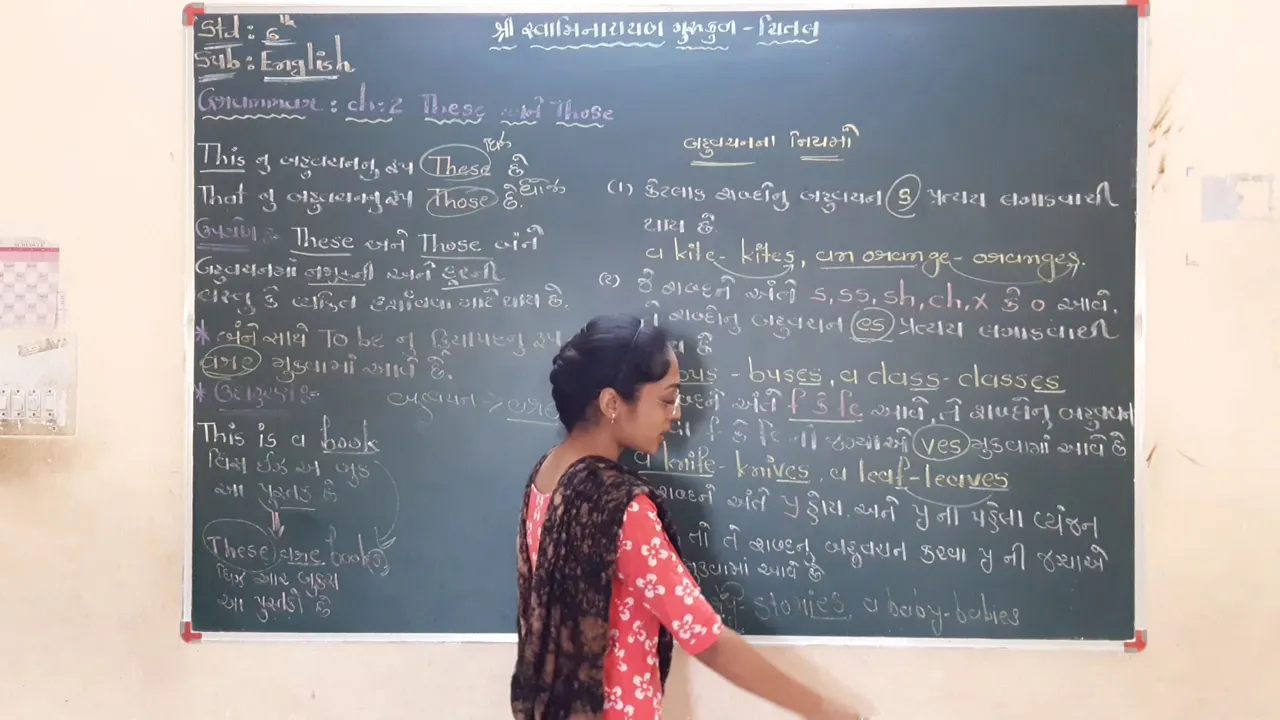 Std : 6th
Sub : English
શ્રી સ્વામિનારાયણ ગુરુકુળ - ચિતલ
Grammar : ch:2 These અને Those
This નુ બહુવચનનુ રૂપ These છે
ધિઝ
That નુ બહુવચનનુ રૂપ Those છે.
ધોઝ
ઉપયોગ :- These અને Those બંને
બહુવચનમાં નજીકની અને દૂરની
વસ્તુ કે વ્યકિત દર્શાવવા માટે થાય છે.
* બંને સાથે To be નુ ક્રિયાપદનુ રૂપ
are મુકવામાં આવે છે.
* ઉદાહરણ :-
બહુવચન → are
This is a book
ધિસ ઈઝ અ બુક
આ પુસ્તક છે
These are books
ધિઝ આર બુક્સ
આ પુસ્તકો છે
બહુવચનના નિયમો
(1) કેટલાક શબ્દોનુ બહુવચન s પ્રત્યય લગાડવાથી
થાય છે.
a kite - kites, an orange - oranges.
(૨) જે શબ્દને અંતે s, ss, sh, ch, x કે o આવે,
શબ્દોનુ બહુવચન es પ્રત્યય લગાડવાથી
છે
bus - buses, a class - classes
અંતે f કે fe આવે, તે શબ્દોનુ બહુવચન
f કે fe ની જગ્યાએ ves મુકવામાં આવે છે
a knife - knives, a leaf - leaves
શબ્દને અંતે y હોય અને y ના પહેલા વ્યંજન
તો તે શબ્દનુ બહુવચન કરવા y ની જગ્યાએ
મુકવામાં આવે છે
stories, a baby - babies